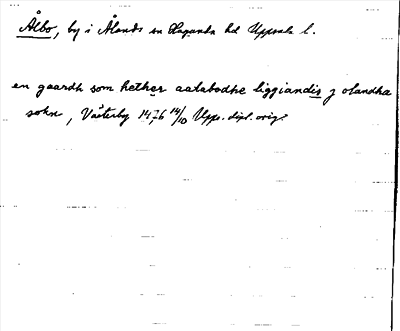 Ålbo, by i Ålands sn Hagunda hd Uppsala l.
en gaardh som hether aalabodhe liggiandis j olandha
sokn, Västerby 1476 14/10 Upps. dipl. orig.